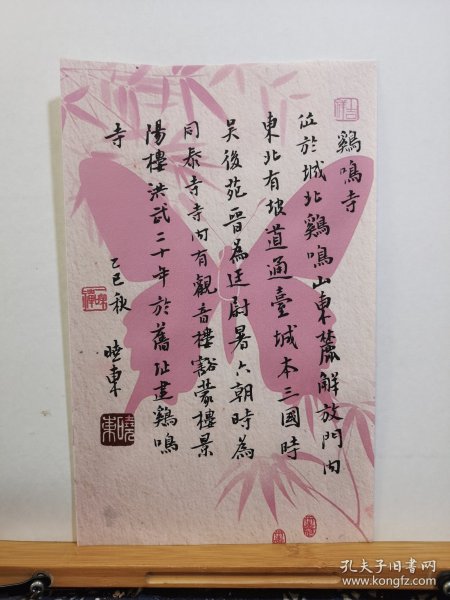 鷄鳴寺
位於城北鷄鳴山東麓解放門内
東北有坡道通臺城本三國時
吴後苑晋為廷尉署六朝時為
同泰寺寺内有觀音樓豁蒙樓景
陽樓洪武二十年於舊址建鷄鳴
寺
乙巳秋 曉東
曉東
孔夫子旧书网
www.kongfz.com